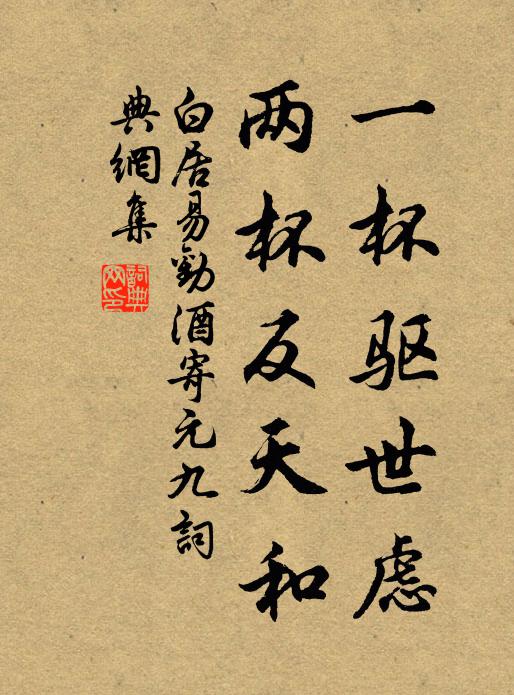 一杯驱世虑
两杯反天和
白居易勸酒寄元九詞
典網集
詞典
网印